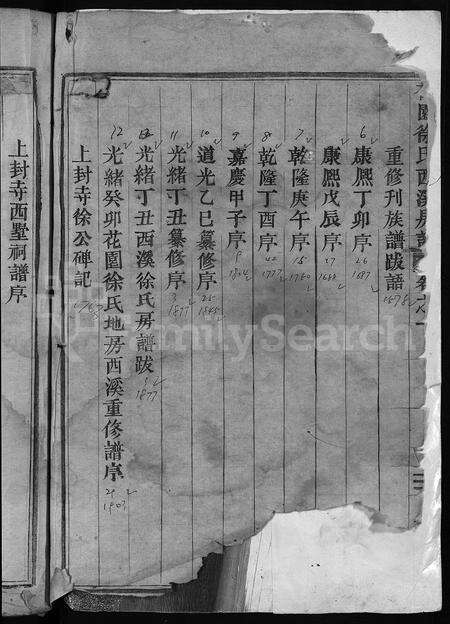 花園徐氏西溪房譜
重修刊族譜跋語
1678
6 康熙丁卯序 26 1687
康熙戊辰序 27 1688
7 乾隆庚午序 15 1750
8 乾隆丁酉序 42 1777
9 嘉慶甲子序 9 1804
10 道光乙巳纂修序 25 1845
11 光緒丁丑纂修序 3 1877
光緒丁丑西溪徐氏房譜跋 3 1877
12 光緒癸卯花園徐氏地房西溪重修譜序 29 1903
上封寺徐公碑記
上封寺西墅祠譜序
FamilySearch